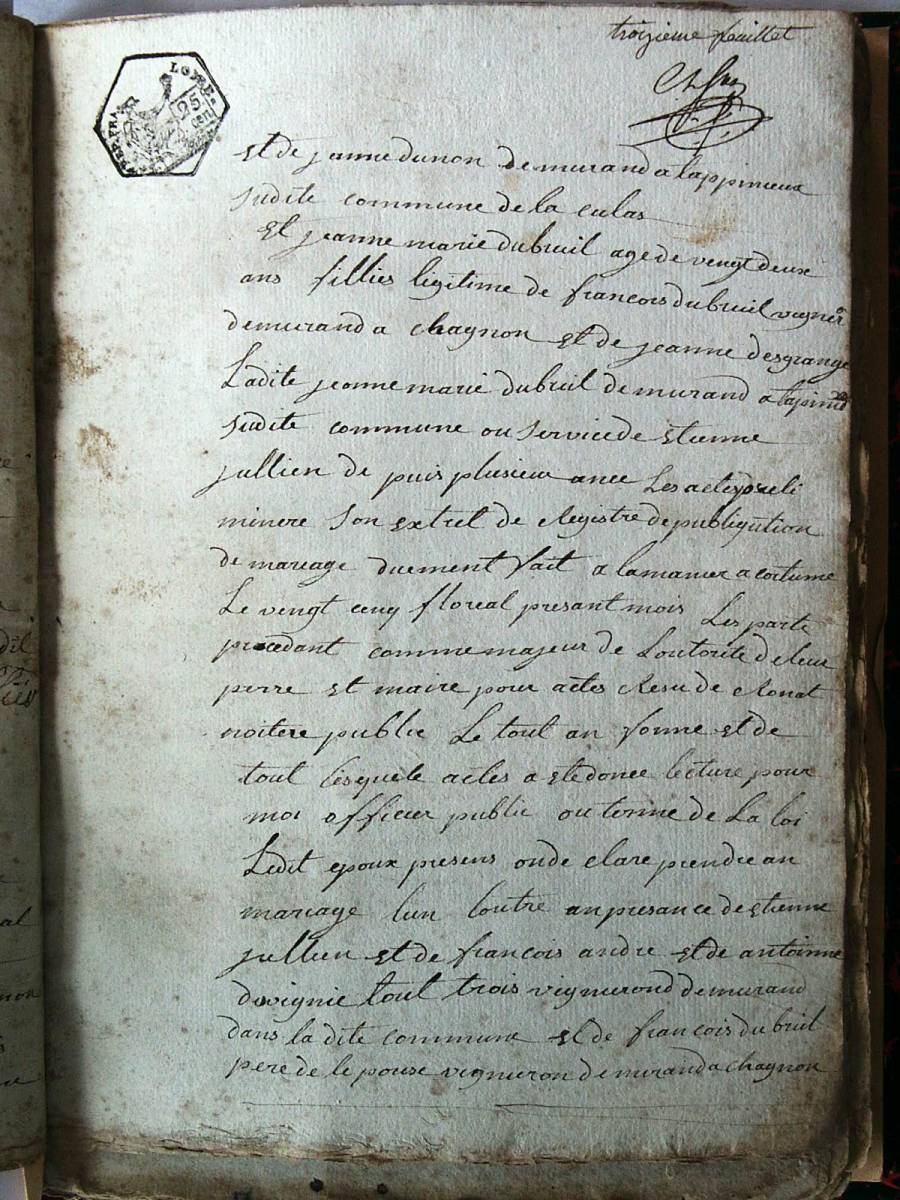 troizieme feuillet
REP. FRA LOIRE
25 cen
et de janne dunon demurand a lappinieux
sudite commune de la culas
Et jeanne marie dubreuil age de vengt deux
ans fillies legitime de francois dubreuil vigner
demurand a chagnon et de jeanne desgrange
Ladite jeanne marie dubreuil demurand a
sudite commune ou service de etienne
jullien de puis plusieur anee Les actes preli
minere son extret de Registre de publiqution
de mariage duement fait a la manier a coutume
Le vengt cinq floreal presant mois Les parte
procedant comme majeur de Loutorite de leur
perre et maire pour actes Resu de Ronat
noitere public Le tout an forme et de
tout lesquele actes a ete donee lecture pour
moi officier public ou terme de La loi
Ledit epoux presens onde clare prendre an
mariage lun loutre an presance de etienne
jullien et de francois andre et de antoinne
tout trois vignerond demurand
dans la dite commune et de francois dubriul
pere de le pouse vigneron demurand a chagnon